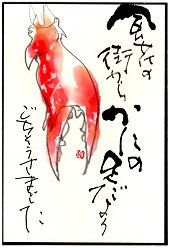 の
街から
かにの足だよう
ごちそうさまでした